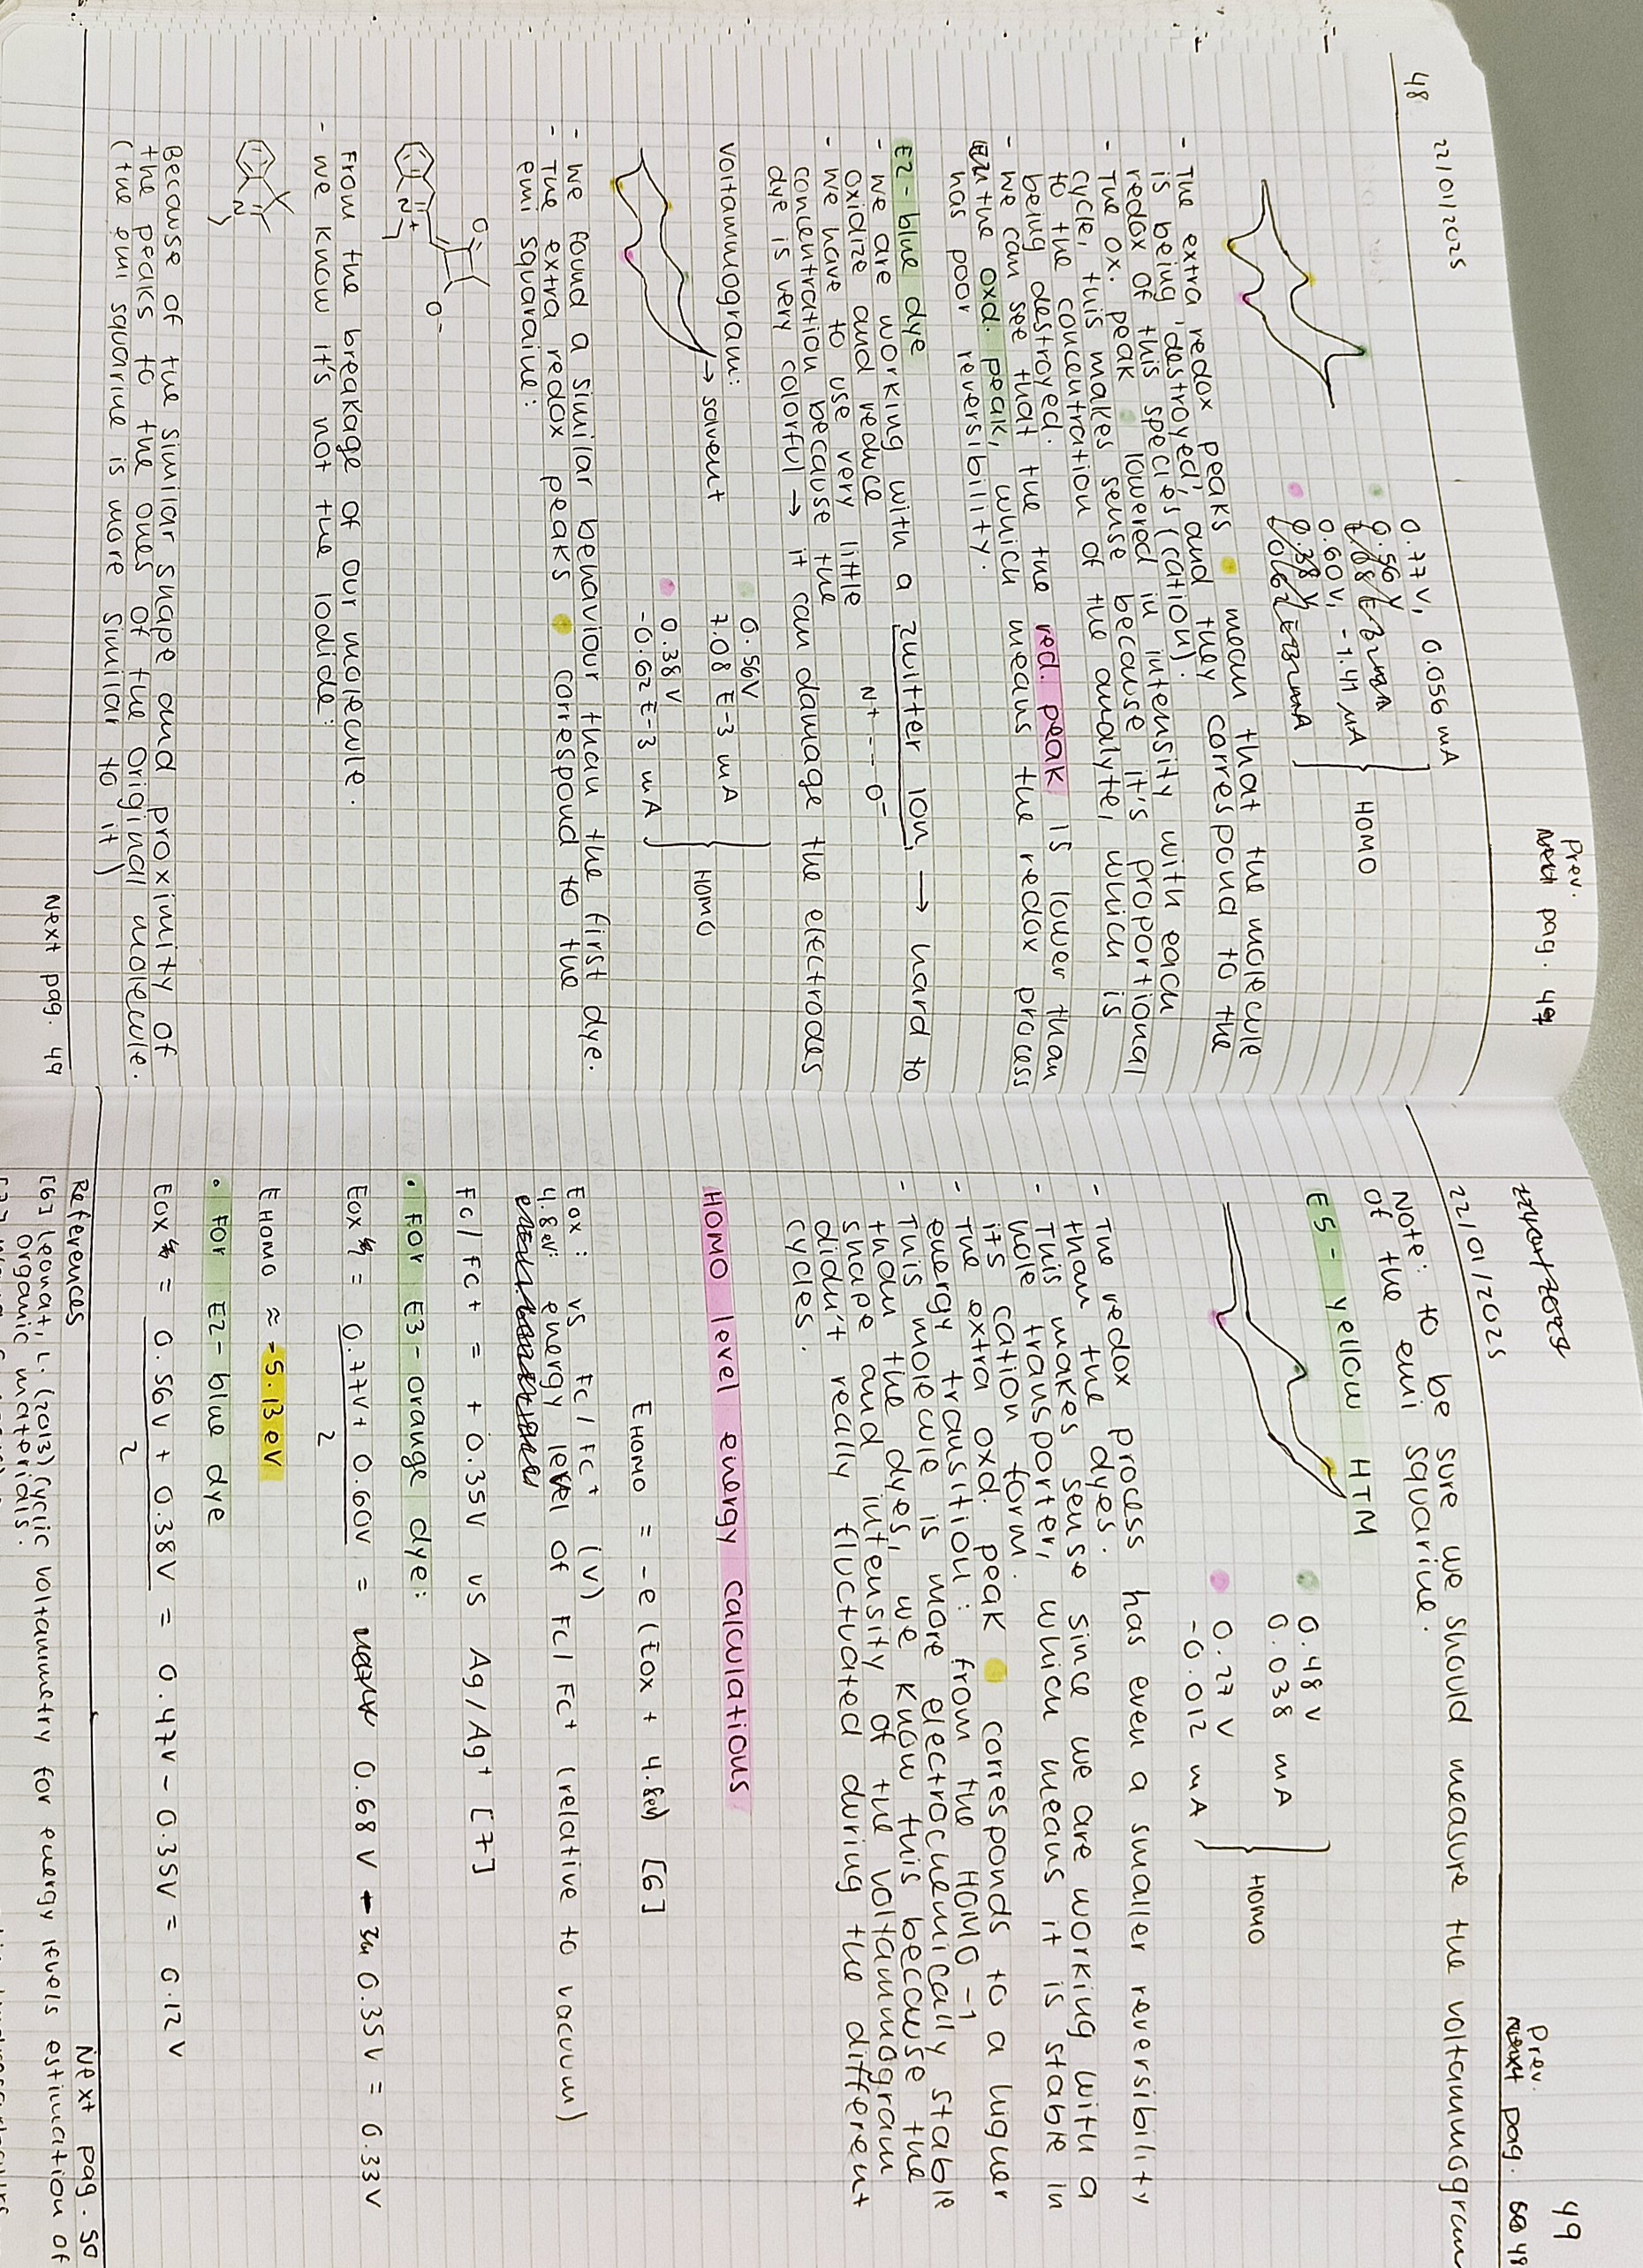 48
22/01/2025
Prev.
pag. 47
0.77V, 0.056 mA
0.56V
7.08 E-3 mA
0.60V, -1.41 µA
0.38V
HOMO
- The extra redox peaks mean that the molecule
is being 'destroyed', and they correspond to the
redox of this species (cation).
- The ox. peak lowered in intensity with each
cycle, this makes sense because it's proportional
to the concentration of the analyte, which is
being destroyed.
- We can see that the red. peak is lower than
the oxd. peak, which means the redox process
has poor reversibility.
E2 - blue dye
- we are working with a zwitter ion, → hard to
oxidize and reduce
N+ --- O-
- we have to use very little
concentration because the
dye is very colorful → it can damage the electrodes
Voltammogram:
→ solvent
0.56V
7.08 E-3 mA
0.38V
-0.62E-3 mA
HOMO
- we found a similar behaviour than the first dye.
- The extra redox peaks correspond to the
emi squaraine:
O
O-
N+
From the breakage of our molecule.
- we know it's not the iodide:
N+
Because of the similar shape and proximity of
the peaks to the ones of the original molecule.
(the emi squarine is more similar to it)
Next pag. 49
49
22/01/2025
22/01/2025
Prev.
pag. 48
Note: to be sure we should measure the voltammogram
of the emi squarine.
E5 - yellow HTM
0.48 V
0.038 mA
0.27 V
-0.012 mA
HOMO
- The redox process has even a smaller reversibility
than the dyes.
- This makes sense since we are working with a
hole transporter, which means it is stable in
its cation form.
- The extra oxd. peak corresponds to a higher
energy transition: from the HOMO -1
- This molecule is more electrochemically stable
than the dyes, we know this because the
shape and intensity of the voltammogram
didn't really fluctuated during the different
cycles.
HOMO level energy calculations
EHOMO = -e (Eox + 4.8eV) [6]
Eox: vs Fc/Fc+ (V)
4.8 eV: energy level of Fc/Fc+ (relative to vacuum)
Fc/Fc+ = + 0.35V vs Ag/Ag+ [7]
• For E3 - orange dye:
Eox = 0.77V + 0.60V / 2 = 0.68 V - 0.35V = 0.33V
EHOMO ≈ -5.13 eV
• For E2 - blue dye
Eox = 0.56V + 0.38V / 2 = 0.47V - 0.35V = 0.12V
Next pag. 50
References
[6] Leonat, L. (2013) Cyclic voltammetry for energy levels estimation of
organic materials.